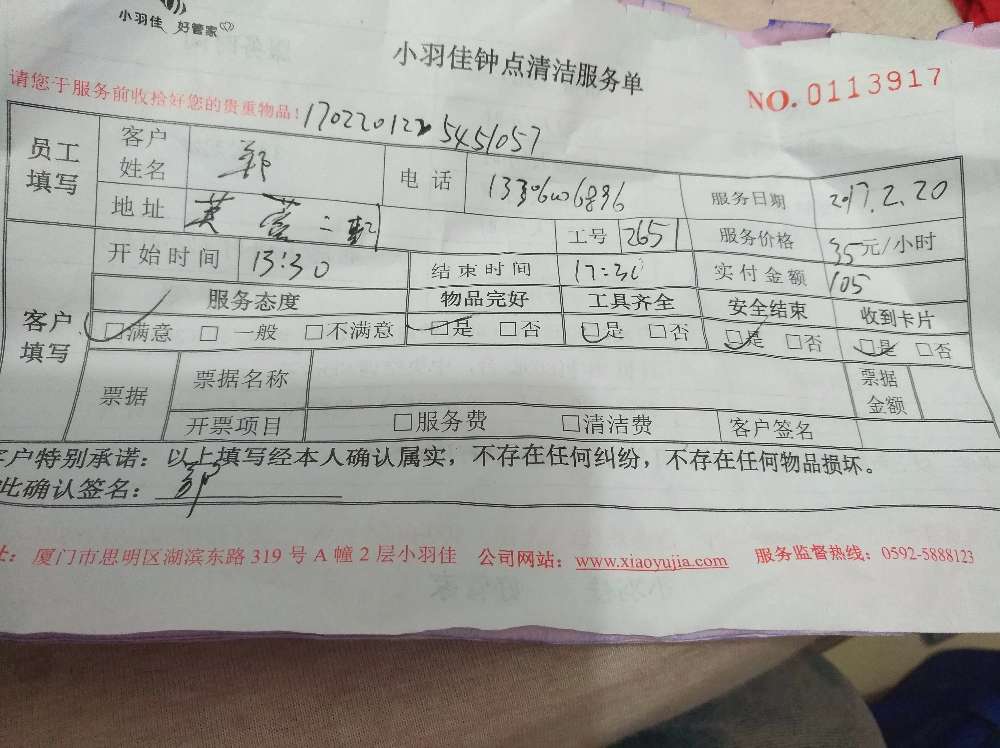 小羽佳 好管家
小羽佳钟点清洁服务单
请您于服务前收拾好您的贵重物品!
NO.0113917
1702201225451057
员工填写 客户姓名 郭 电话 服务日期 2017.2.20
地址 芙蓉二 工号 2651 服务价格 35元/小时
开始时间 13:30 结束时间 17:30 实付金额 105
客户填写 服务态度 物品完好 工具齐全 安全结束 收到卡片
□满意 □一般 □不满意 □是 □否 □是 □否 □是 □否 □是 □否
票据 票据名称 票据金额
开票项目 □服务费 □清洁费 客户签名
客户特别承诺：以上填写经本人确认属实，不存在任何纠纷，不存在任何物品损坏。
此确认签名：郭
址：厦门市思明区湖滨东路319号A幢2层小羽佳 公司网站：www.xiaoyujia.com 服务监督热线：0592-5888123